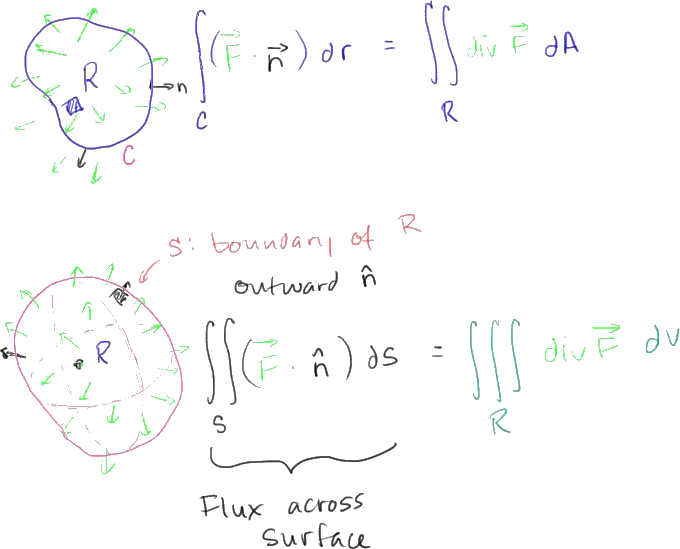 R
n
C
∫_C (F⃗ · n⃗) dr = ∬_R div F⃗ dA
S: boundary of R
outward n̂
R
∬_S (F⃗ · n̂) dS = ∭_R div F⃗ dV
Flux across
surface